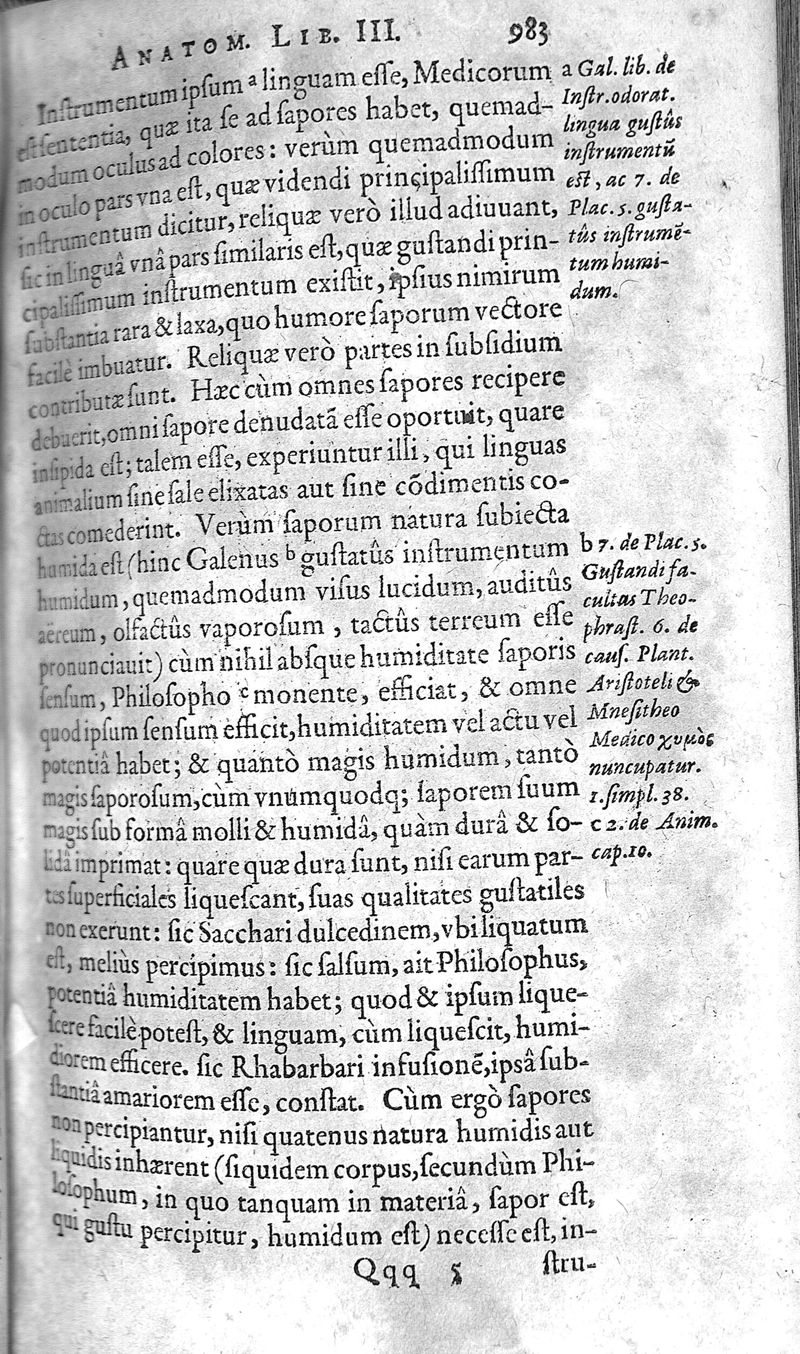 ANATOM. LIB. III. 983
Inſtrumentum ipſum ᵃ linguam eſſe, Medicorum
eſt ſententia, quæ ita ſe ad ſapores habet, quemad-
modum oculus ad colores: verùm quemadmodum
in oculo pars vna eſt, quæ videndi principaliſſimum
inſtrumentum dicitur, reliquæ verò illud adiuuant,
ſic in linguâ vnâ pars ſimilaris eſt, quæ guſtandi prin-
cipaliſſimum inſtrumentum exiſtit, ipſius nimirum
ſubſtantia rara & laxa, quo humore ſaporum vectore
facilè imbuatur. Reliquæ verò partes in ſubſidium
contributæ ſunt. Hæc cùm omnes ſapores recipere
debuerit, omni ſapore denudatã eſſe oportuit, quare
inſipida eſt; talem eſſe, experiuntur illi, qui linguas
animalium ſine ſale elixatas aut ſine cõdimentis co-
ctas comederint. Verùm ſaporum natura ſubiecta
humida eſt (hinc Galenus ᵇ guſtatûs inſtrumentum
humidum, quemadmodum viſus lucidum, auditûs
aëreum, olfactûs vaporoſum, tactûs terreum eſſe
pronunciauit) cùm nihil abſque humiditate ſaporis
ſenſum, Philoſopho ᶜ monente, efficiat, & omne
quod ipſum ſenſum efficit, humiditatem vel actu vel
potentiâ habet; & quantò magis humidum, tantò
magis ſaporoſum, cùm vnumquodq; ſaporem ſuum
magis ſub formâ molli & humidâ, quàm durâ & ſo-
lidâ imprimat: quare quæ dura ſunt, niſi earum par-
tes ſuperficiales liqueſcant, ſuas qualitates guſtatiles
non exerunt: ſic Sacchari dulcedinem, vbi liquatum
eſt, meliùs percipimus: ſic ſalſum, ait Philoſophus,
potentiâ humiditatem habet; quod & ipſum lique-
ſcere facilè poteſt, & linguam, cùm liqueſcit, humi-
diorem efficere. ſic Rhabarbari infuſionẽ, ipsâ ſub-
ſtantiâ amariorem eſſe, conſtat. Cùm ergò ſapores
non percipiantur, niſi quatenus natura humidis aut
liquidis inhærent (ſiquidem corpus, ſecundùm Phi-
loſophum, in quo tanquam in materiâ, ſapor eſt,
qui guſtu percipitur, humidum eſt) neceſſe eſt, in-
Qqq 5 ſtru-
a Gal. lib. de
Inſtr. odorat.
lingua guſtûs
inſtrumentũ
eſt, ac 7. de
Plac. 5. guſta-
tûs inſtrumẽ-
tum humi-
dum.
b 7. de Plac. 5.
Guſtandi fa-
cultas Theo-
phraſt. 6. de
cauſ. Plant.
Ariſtoteli &
Mneſitheo
Medico χυμὸς
nuncupatur.
1. ſimpl. 38.
c 2. de Anim.
cap. 10.